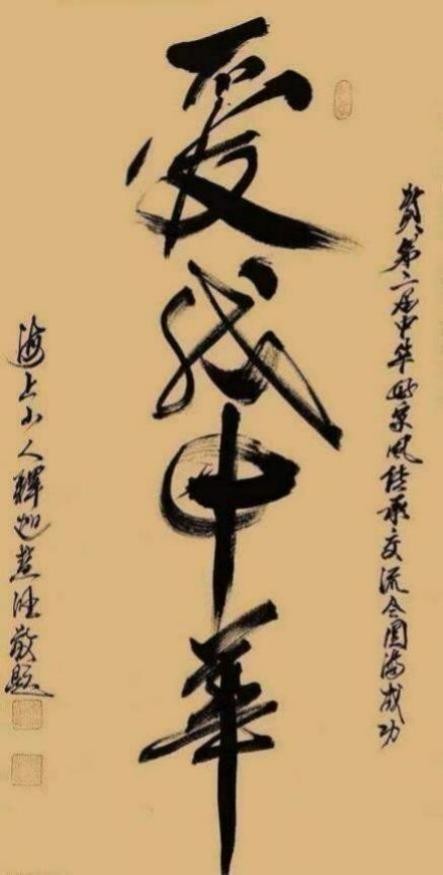 贺第二届中华好家风传承交流会圆满成功
愛我中華
海上小人釋慧敬题